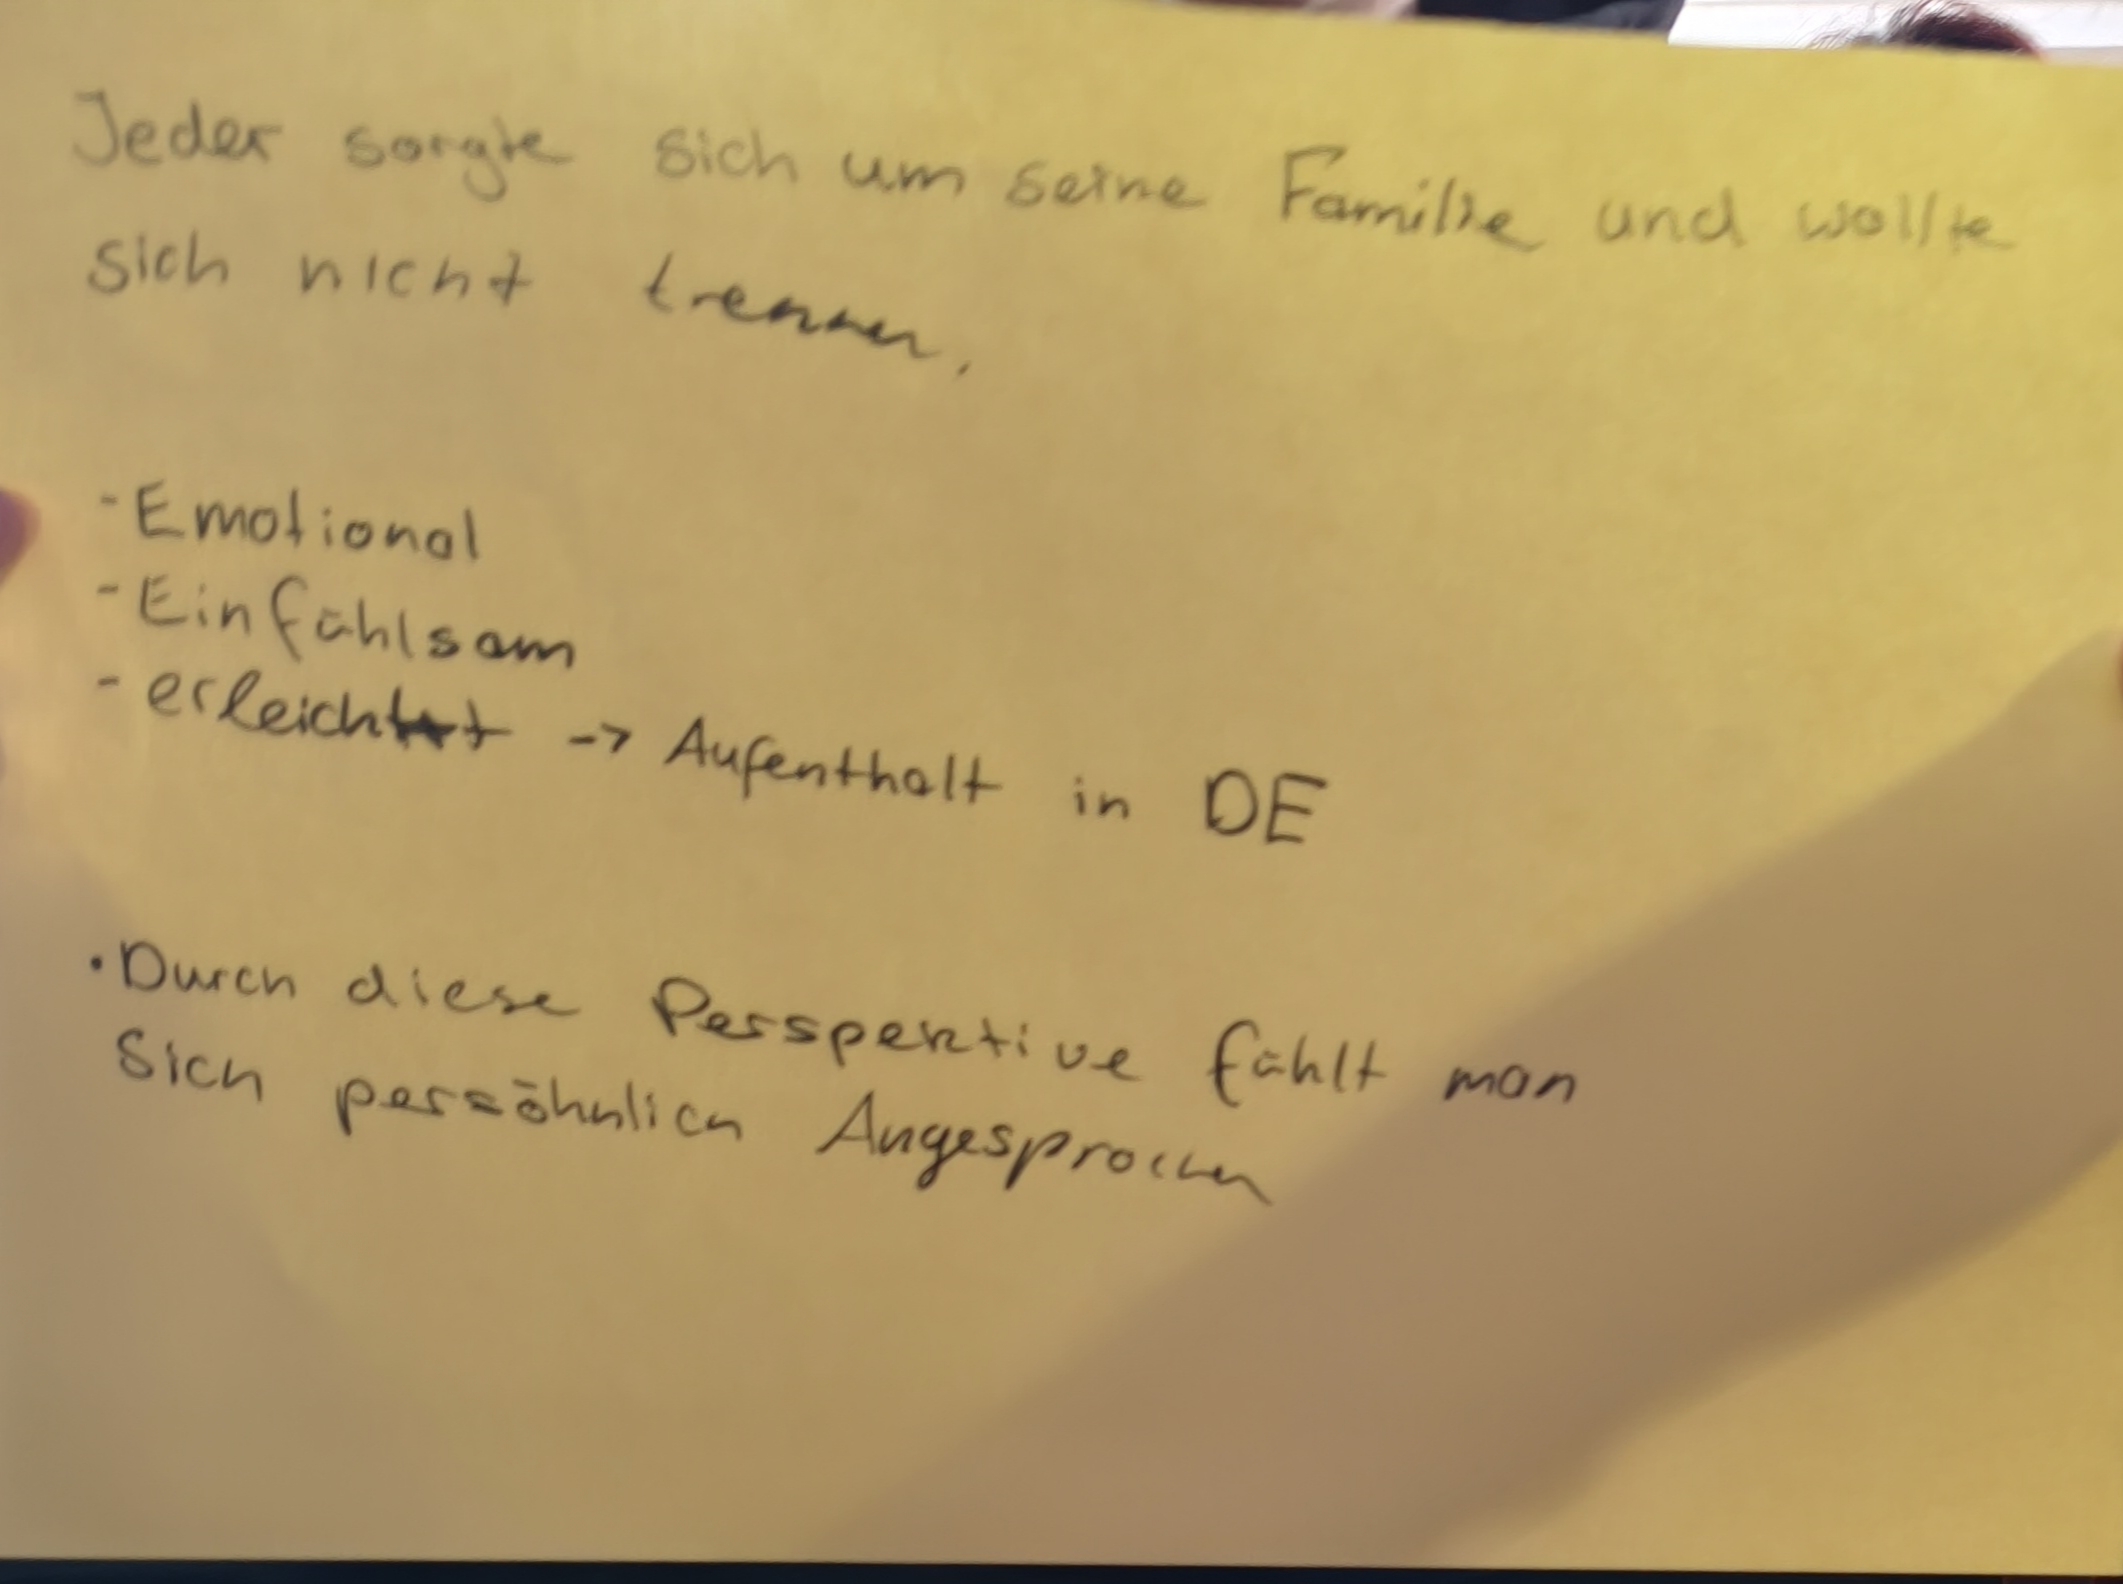 Jeder sorgte sich um seine Familie und wollte
sich nicht trennen.
- Emotional
- Einfühlsam
- erleichtert -> Aufenthalt in DE
• Durch diese Perspektive fühlt man
Sich persöhnlich Angesprochen